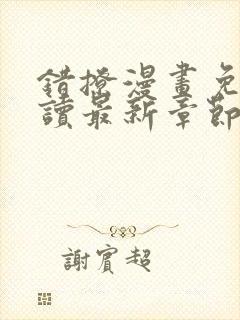 錯撩漫畫免
讀最新章節
謝賓超